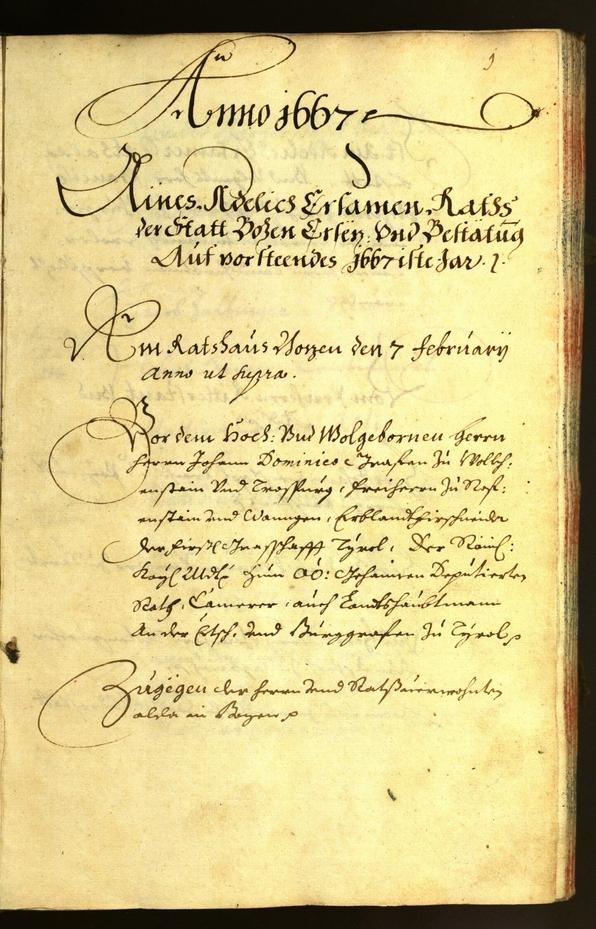 1
Anno 1667
Aines Adelich Ersamen Raths
der Statt Bozen Ersez: Vnd Bestatũg
Auf vorsteendes 1667iste Jar.
Am Rathshaus Bozen den 7 februarÿ
anno ut supra.
Vor dem Hoch: Vnd Wolgebornen herrn
herrn Johann Dominico Graffen zu Wolkh:
enstain Vnd Trospurg, Freiherrn zu Neẃ:
enstain vnd
der fürstl Graffschafft Tÿrol, Der Röm:
Kaÿ: Mtt: OÖ: Gehaimen Deputierten
Rath, Camerer, auch Landtshaubtmann
An der Etsch, vnd Burggrafen zu Tÿrol
Zugegen der herrn vnd
alda in Bozen